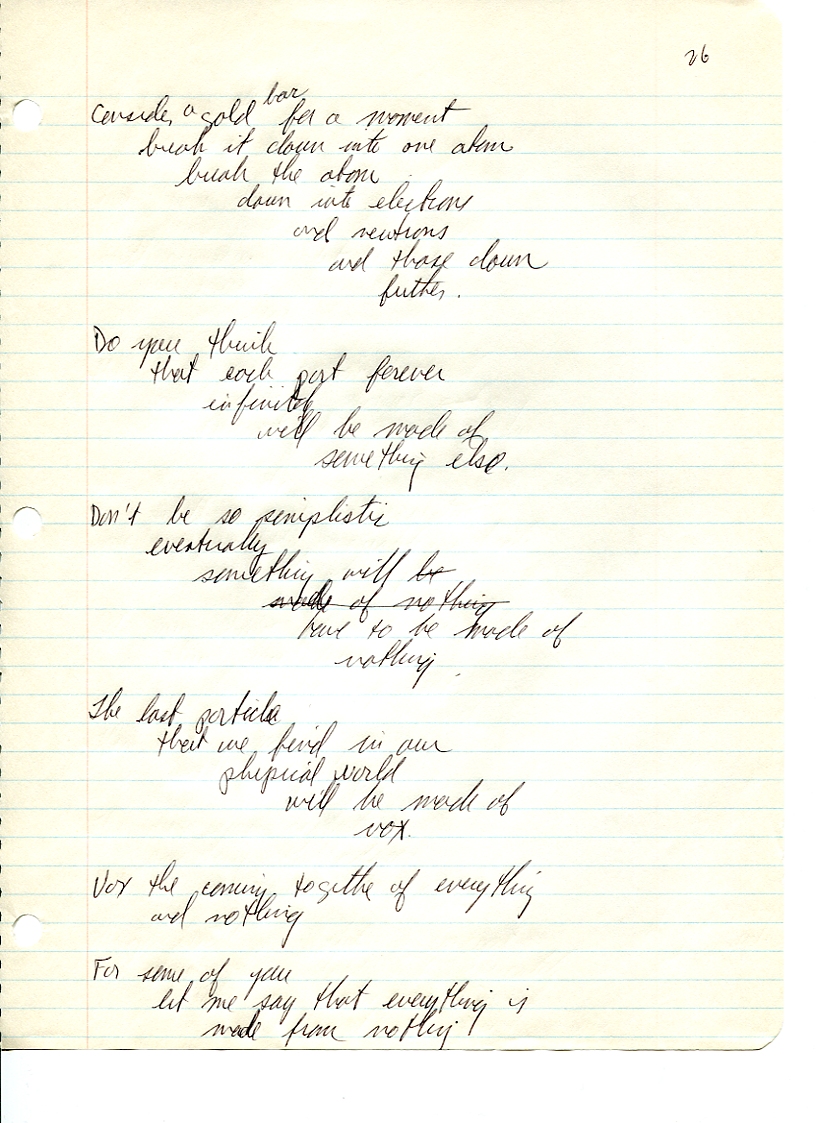 26
Consider a gold bar for a moment
break it down into one atom
break the atom
down into electrons
and neutrons
and those down
further.
Do you think
that each part forever
infinitely
will be made of
something else.
Don't be so simplistic
eventually
something will be
made of nothing
have to be made of
nothing.
The last particle
that we find in our
physical world
will be made of
vox.
Vox the coming together of everything
and nothing
For some of you
let me say that everything is
made from nothing